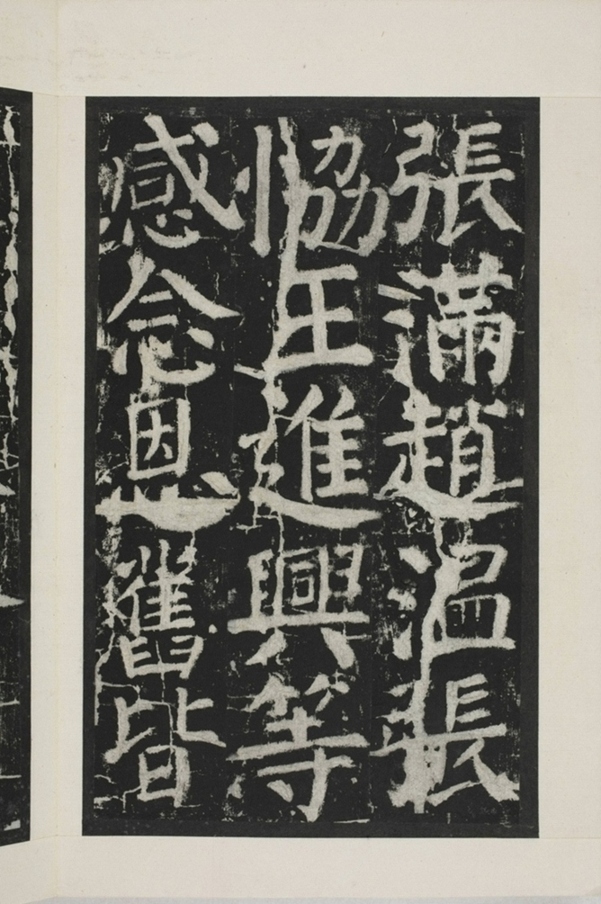 張滿趙温張
協王進興等
感念恩舊皆